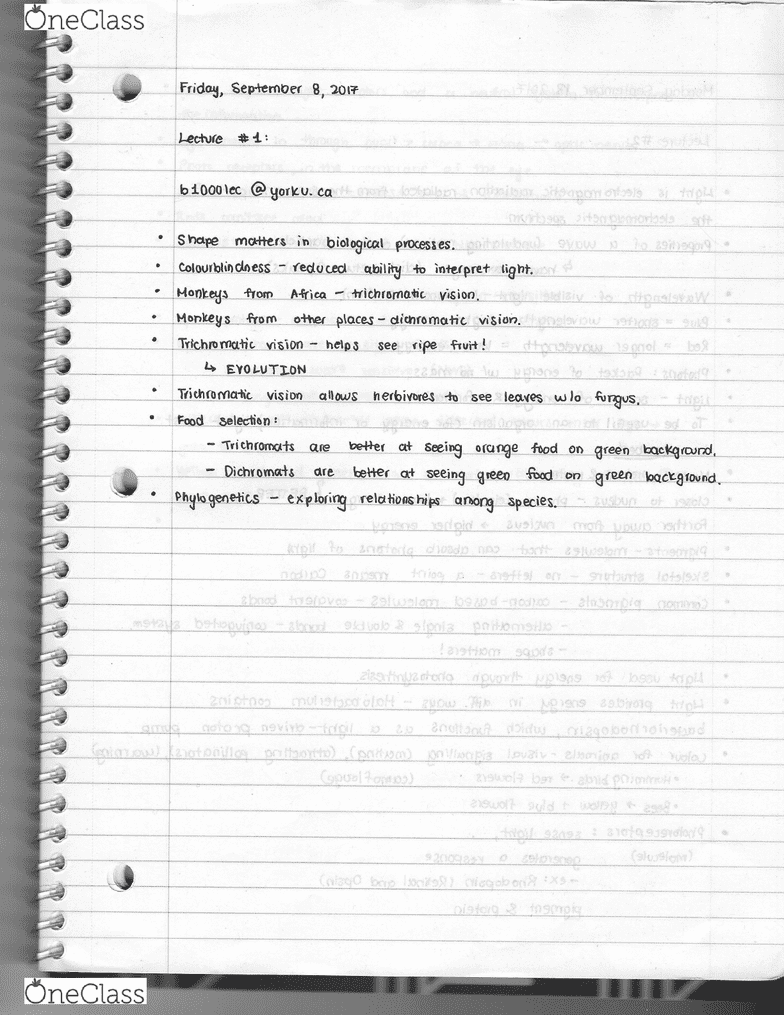 OneClass
Friday, September 8, 2017
Lecture #1:
b1000lec @ yorku.ca
• Shape matters in biological processes.
• Colourblindness – reduced ability to interpret light.
• Monkeys from Africa – trichromatic vision.
• Monkeys from other places – dichromatic vision.
• Trichromatic vision – helps see ripe fruit!
↳ EVOLUTION
• Trichromatic vision allows herbivores to see leaves w/o fungus.
• Food selection:
– Trichromats are better at seeing orange food on green background.
– Dichromats are better at seeing green food on green background.
• Phylogenetics – exploring relationships among species.
OneClass